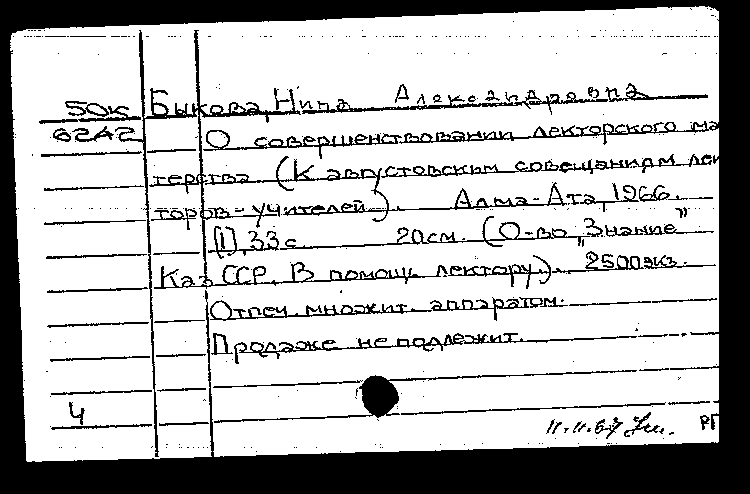 50к Быкова, Нина Александровна
6242 О совершенствовании лекторского ма
терства. (К августовским совещаниям лек
торов-учителей). Алма-Ата, 1966.
[1], 33 с. 20 см. (О-во „Знание”
Каз ССР. В помощь лектору.). 2500 экз.
Отпеч. множит. аппаратом.
Продаже не подлежит.
4
11.11.67 РГ